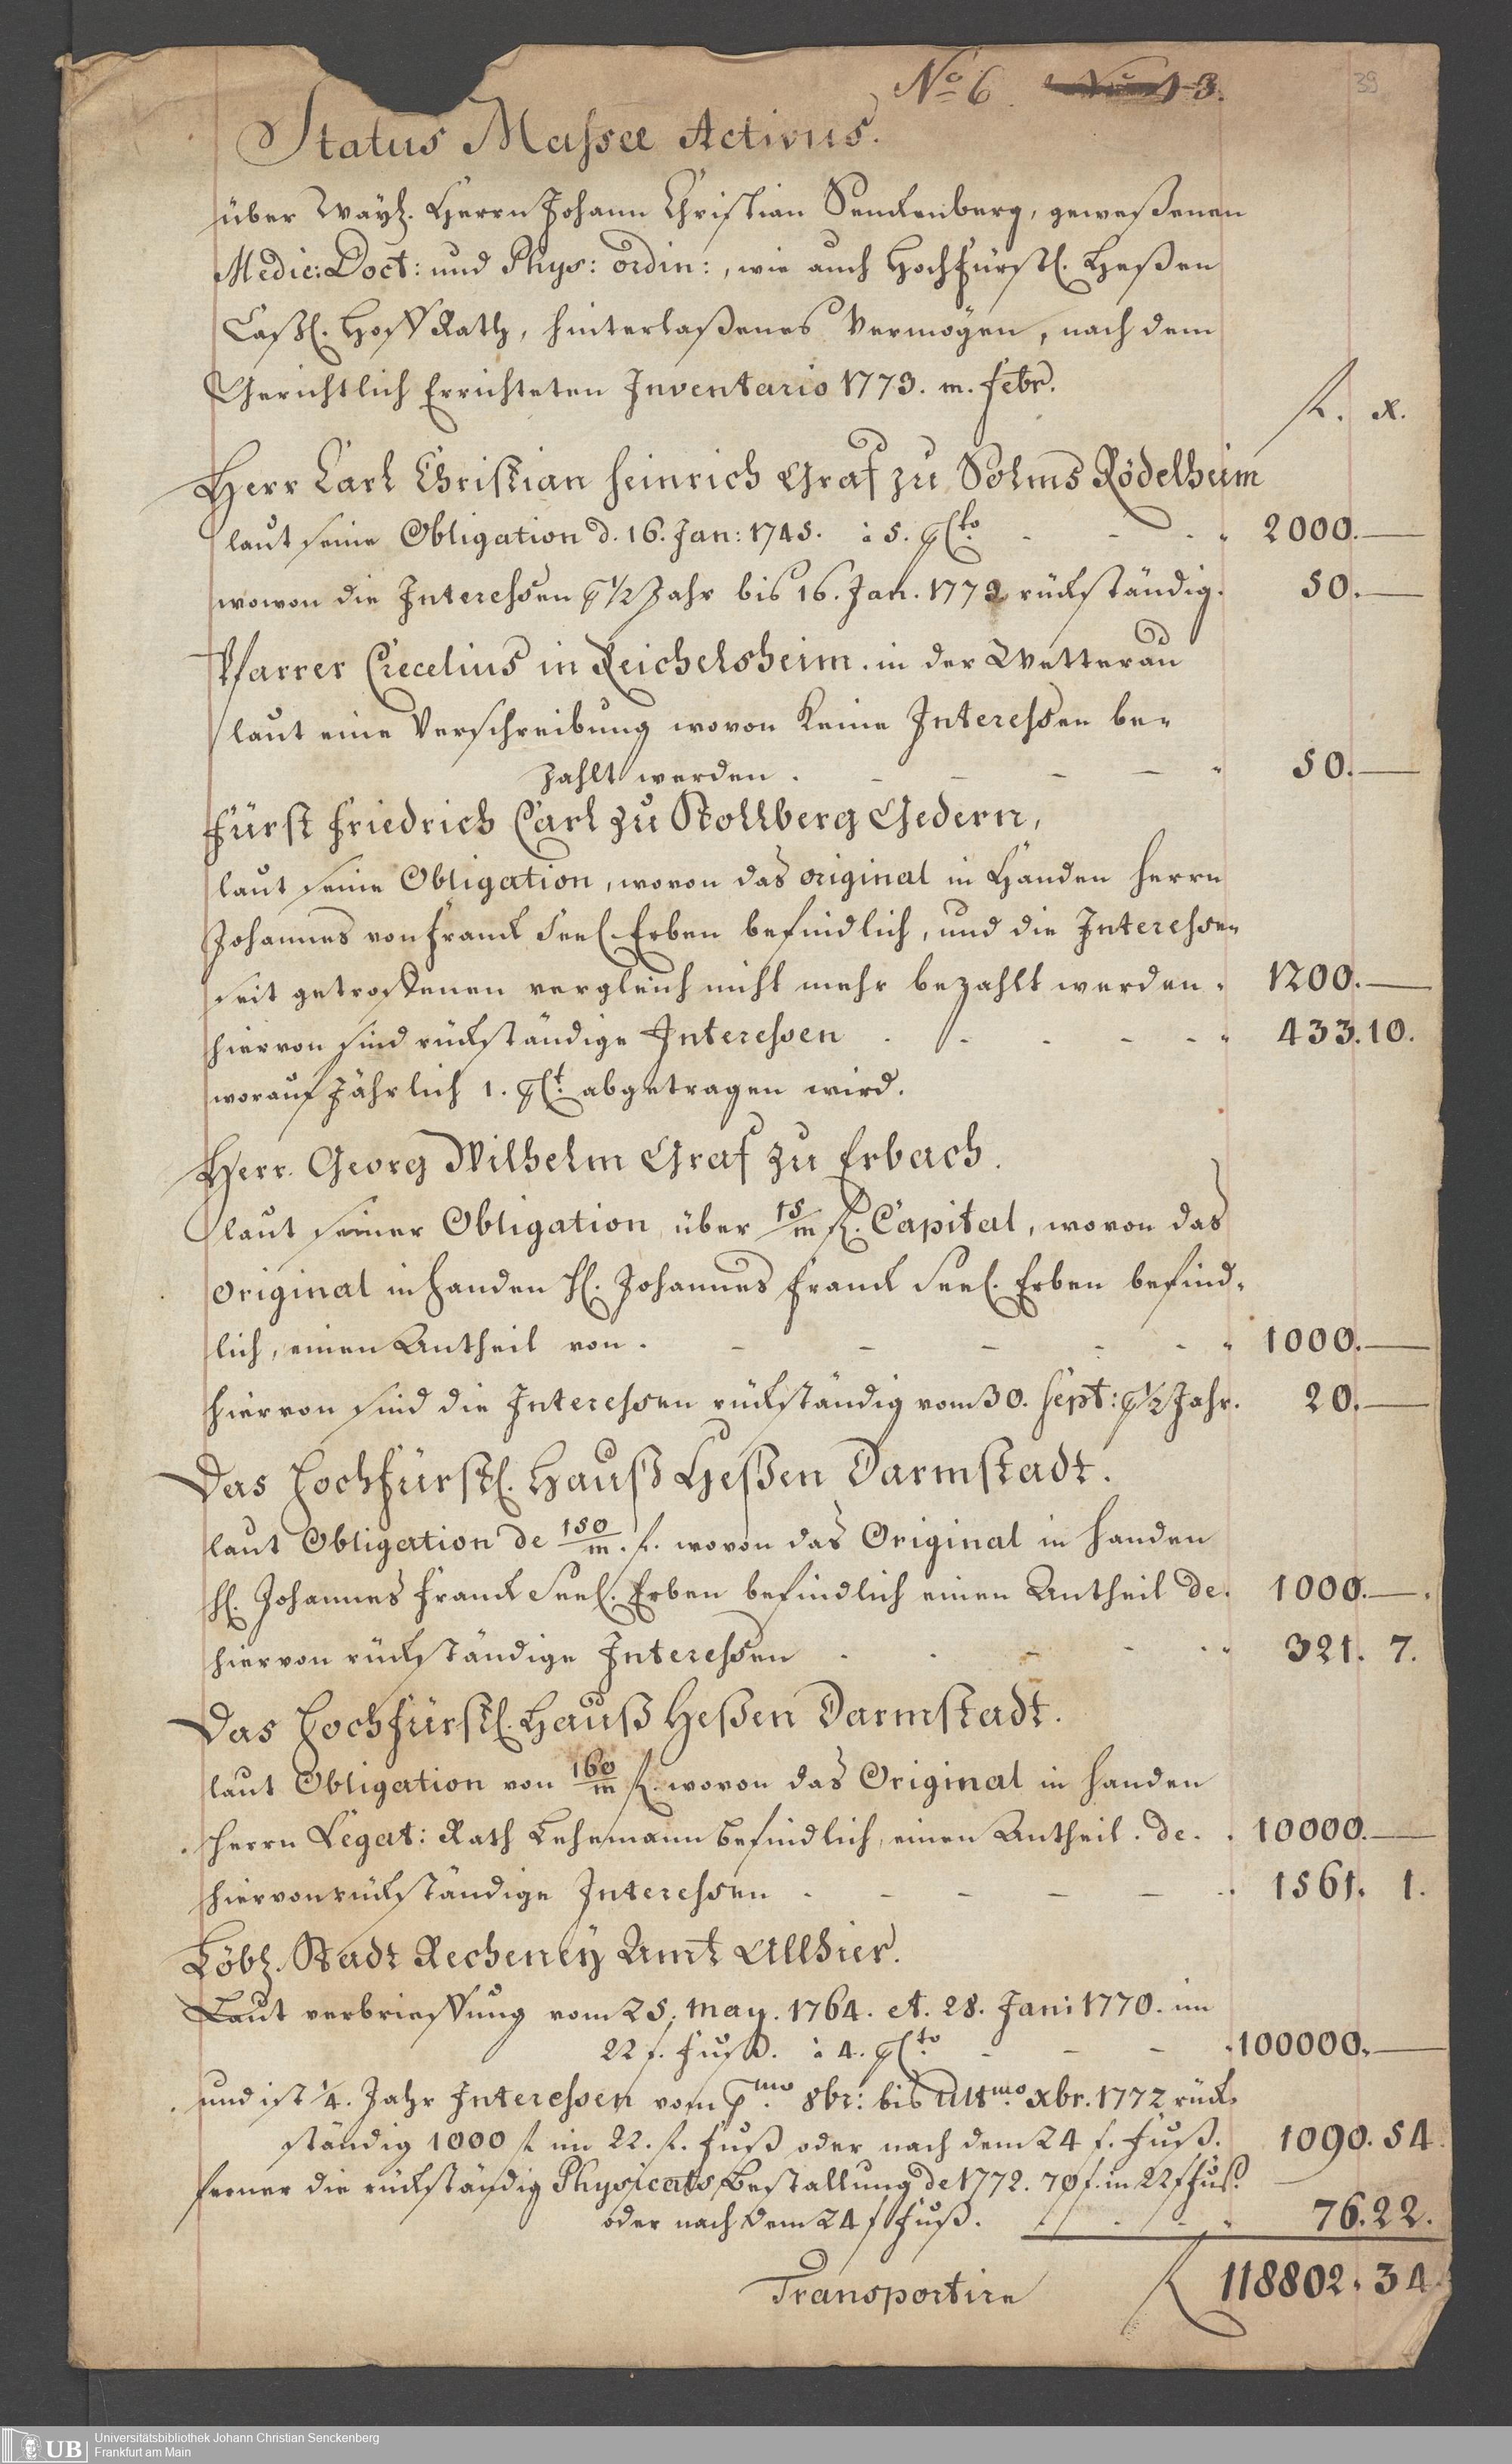 No 6. No 13.
39
Status Massæ Activus.
über Wayl. Herrn Johann Christian Senckenberg, geweßenen
Medic: Doct: und Phys: ordin:, wie auch Hochfürstl. Heßen
Caßl. Hoff Rath, hinterlaßenes Vermögen, nach dem
Gerichtlich Errichteten Inventario 1773. m. febr.
f. x.
Herr Carl Christian Heinrich Graf zu Solms Rödelheim
laut seine Obligation d. 16. Jan: 1745. à 5. pCto 2000.—
wovon die Interessen p 1/2 Jahr bis 16. Jan. 1773 rückständig. 50.—
Pfarrer Crecelius in Reichelsheim in der Wetterau
laut eine Verschreibung wovon keine Interessen be-
zahlt werden. 50.—
Fürst Friedrich Carl zu Stollberg Gedern,
laut seine Obligation, wovon das original in Händen Herrn
Johannes von Franck Seel. Erben befindlich, und die Interessen
seit getroffenen vergleich nicht mehr bezahlt werden. 1200.—
hiervon sind rückständige Interessen 433.10.
worauf Jährlich 1. pCt. abgetragen wird.
Herr Georg Wilhelm Graf zu Erbach.
laut seiner Obligation über 15/m f. Capital, wovon das
original in Handen H. Johannes Franck Seel. Erben befind-
lich, einen Antheil von. 1000.—
hiervon sind die Interessen rückständig vom 30. Sept: p 1/2 Jahr. 20.—
Das Hochfürstl. Hauß Heßen Darmstadt.
laut Obligation de 150/m. f. wovon das Original in Handen
H. Johannes Franck Seel. Erben befindlich einen Antheil de. 1000.—.
hiervon rückständige Interessen 321. 7.
Das Hochfürstl. Hauß Heßen Darmstadt.
laut Obligation von 160/m f. wovon das Original in Handen
Herrn Legat: Rath Lehemann befindlich, einen Antheil. de. 10000.—
hiervon rückständige Interessen 1561. 1.
Löbl. Stadt Recheney Amt Allhier.
Laut verbrieffung vom 25. May. 1764. et. 28. Jani 1770. im
22 f. Fuß. à 4. pCto 100000.—
und ist 1/4. Jahr Interessen vom pmo. 8br: bis Ultmo. xbr. 1772 rück-
ständig 1000 f im 22. f. Fuß oder nach dem 24 f. Fuß. 1090.54.
ferner die rückständig Physicats Bestallung de 1772. 70 f. in 22 f Fuß.
oder nach dem 24 f Fuß. 76.22.
Transportire f 118802.34.
UB Universitätsbibliothek Johann Christian Senckenberg
Frankfurt am Main